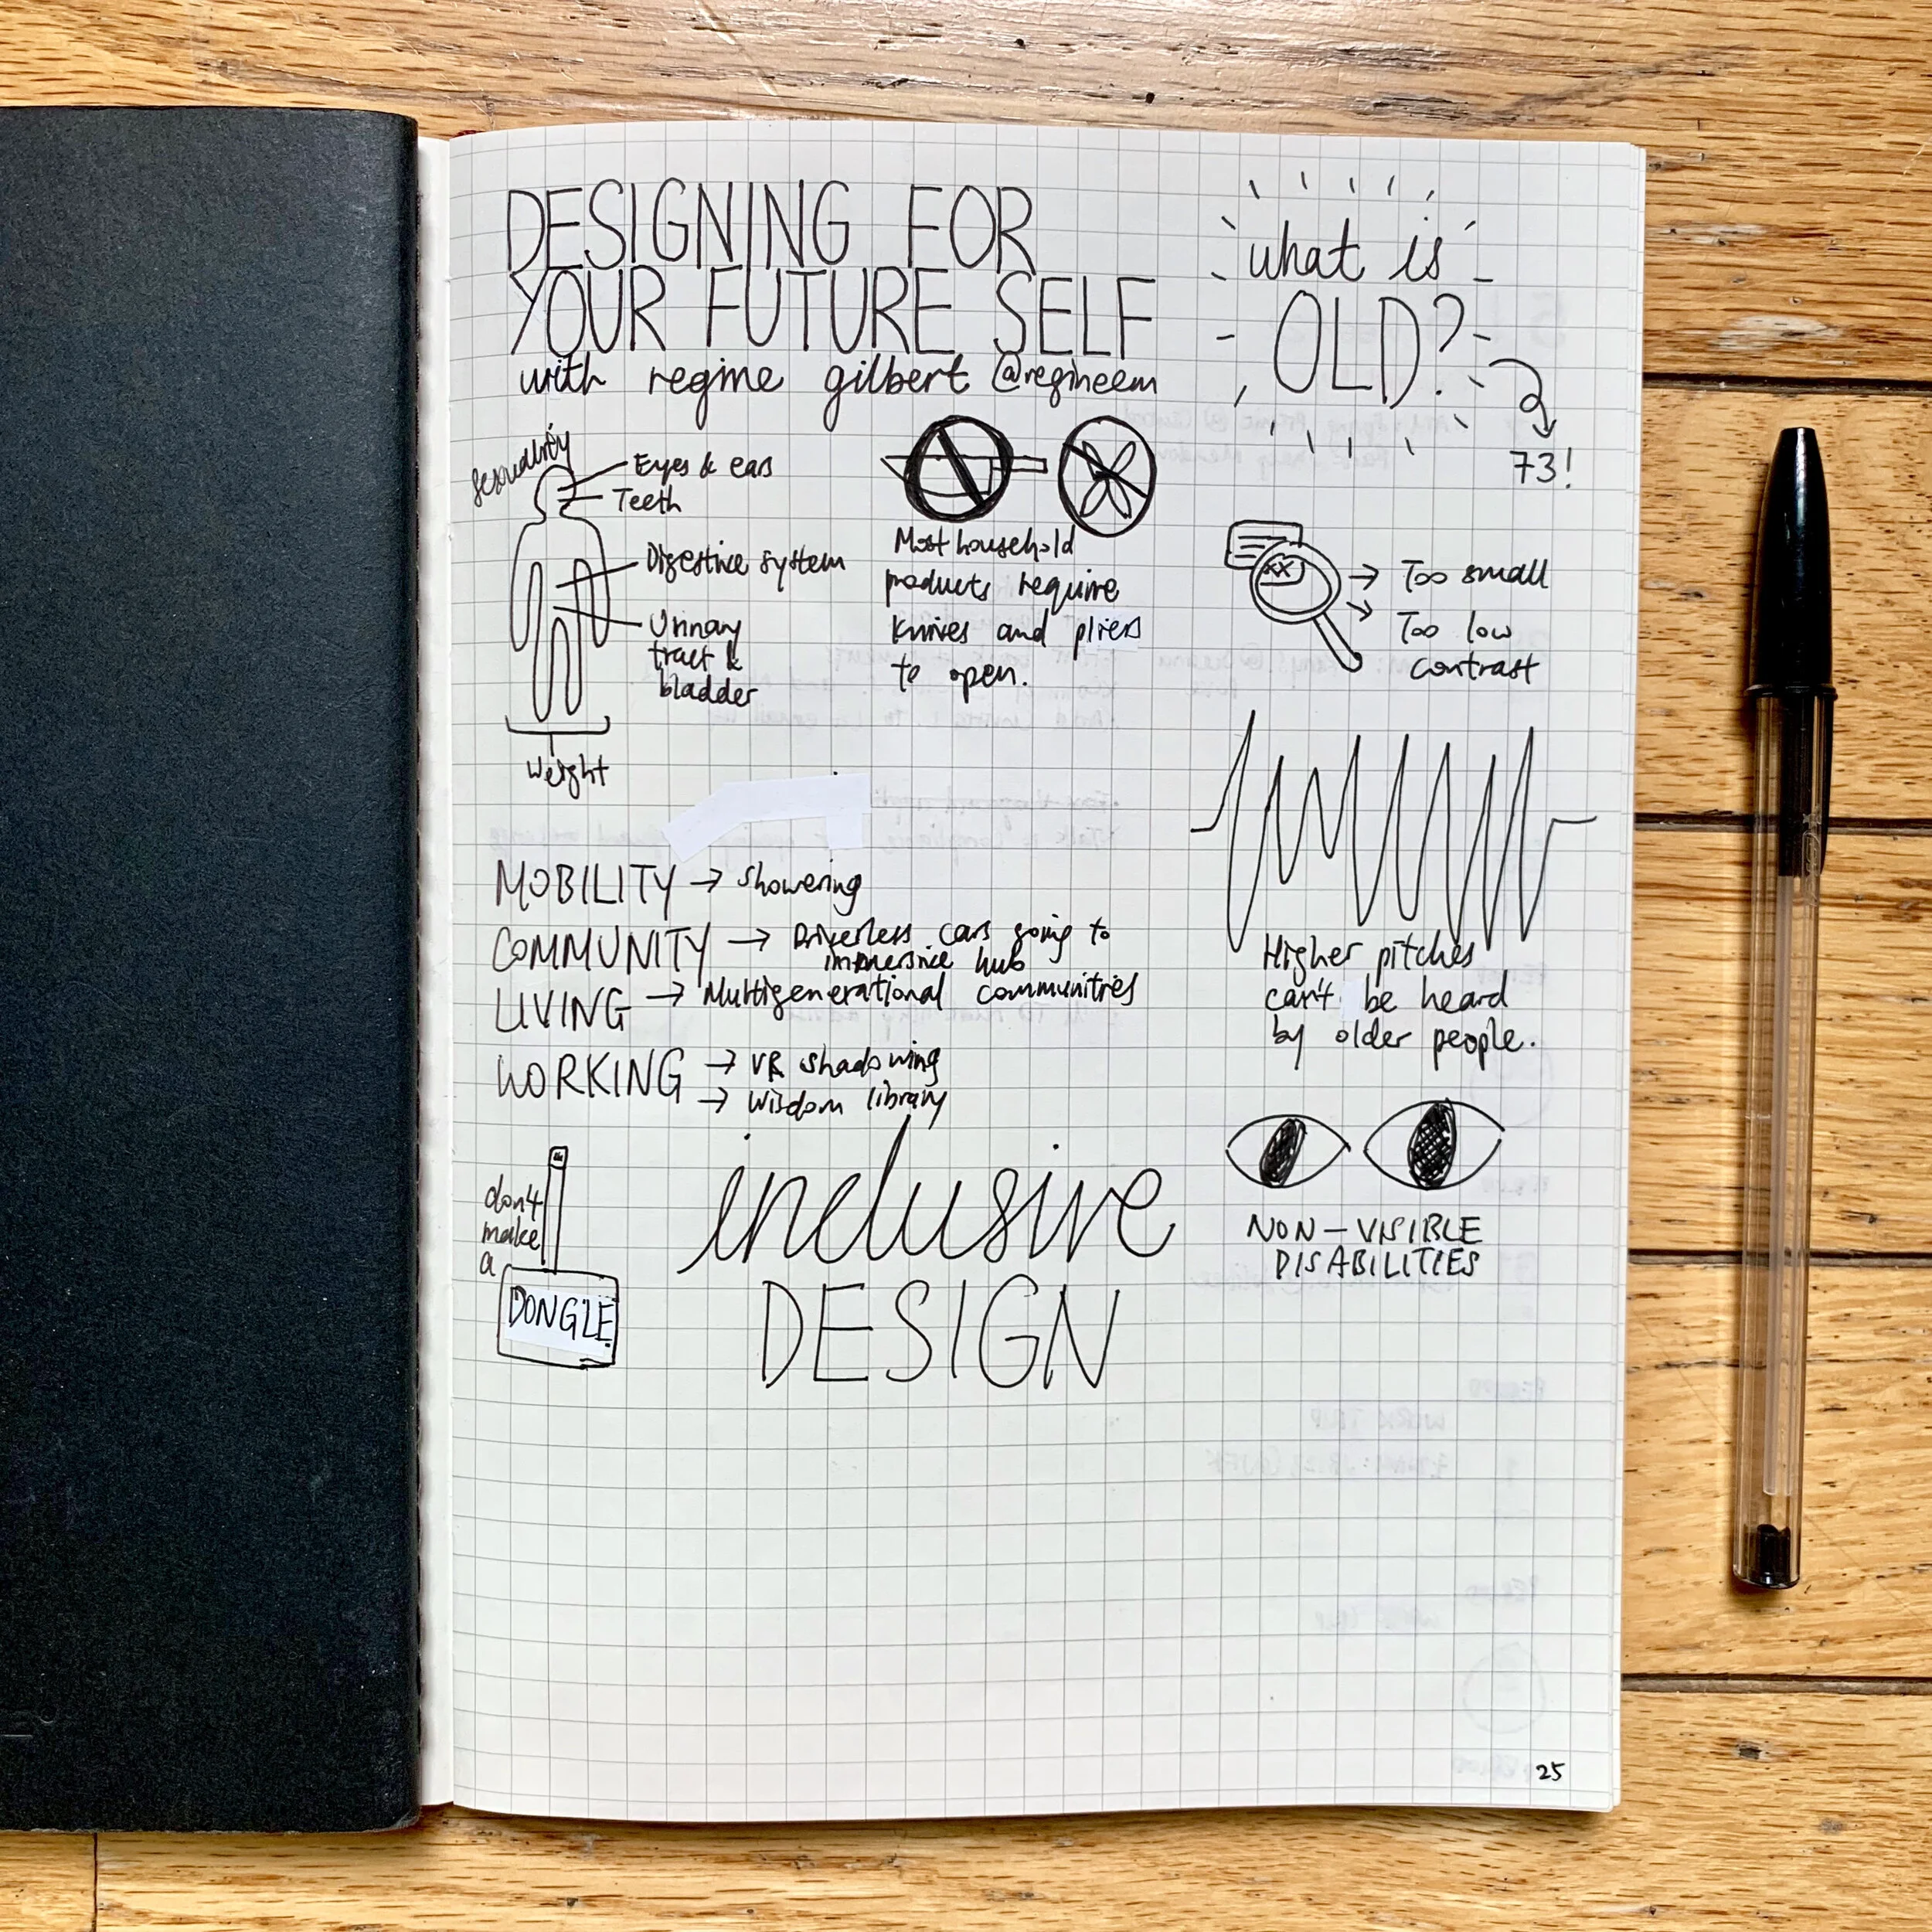 DESIGNING FOR
YOUR FUTURE SELF
with regine gilbert @regineem
what is
OLD?
73!
sexuality
Eyes & ears
Teeth
Digestive system
Urinary
tract &
bladder
Weight
Most household
products require
knives and pliers
to open.
XX
Too small
Too low
contrast
Higher pitches
can't be heard
by older people.
MOBILITY → showering
COMMUNITY → Driverless cars going to
immersive hub
LIVING → Multigenerational communities
WORKING → VR shadowing
→ Wisdom library
don't
make
a
DONGLE
inclusive
DESIGN
NON-VISIBLE
DISABILITIES
25